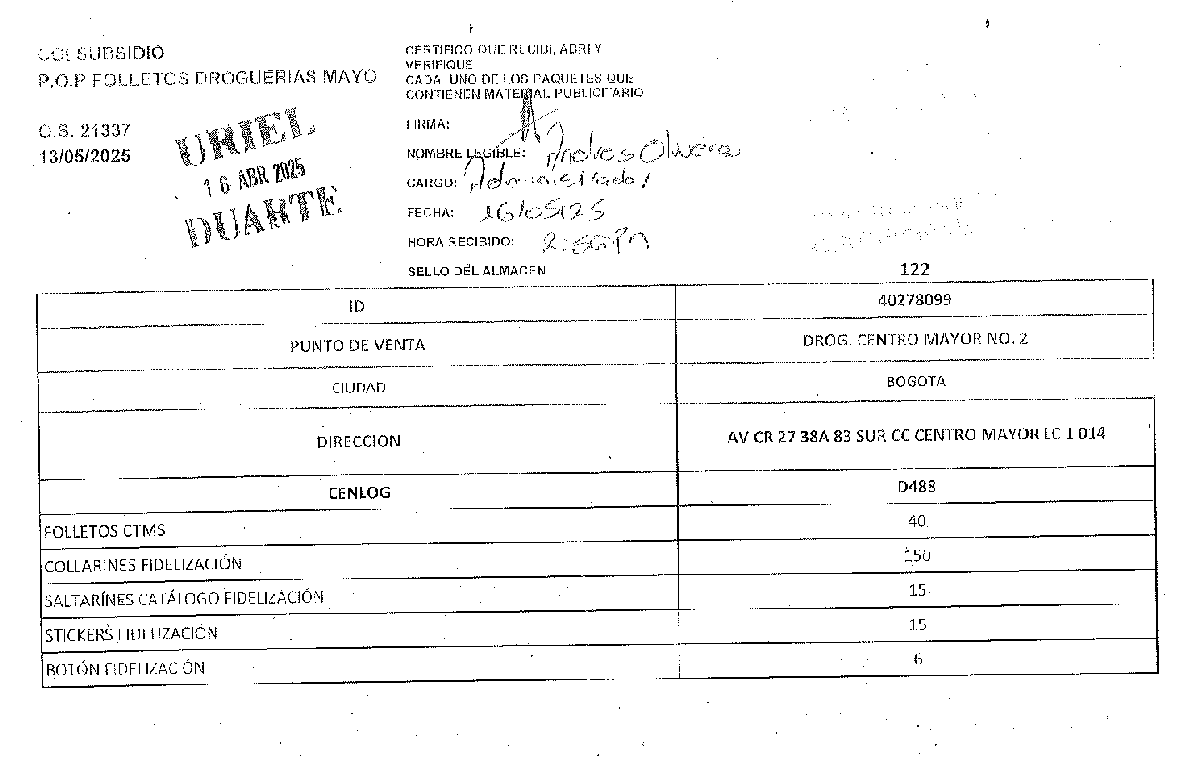 COLSUBSIDIO
P.O.P FOLLETOS DROGUERIAS MAYO
O.S. 21337
13/05/2025
URIEL
16 ABR 2025
DUARTE
CERTIFICO QUE RECIBI, ABRI Y
VERIFIQUE
CADA UNO DE LOS PAQUETES QUE
CONTIENEN MATERIAL PUBLICITARIO
FIRMA:
NOMBRE LEGIBLE: Andres Olivera
CARGO: Administrador
FECHA: 16/05/25
HORA RECIBIDO: 2:50 Pm
SELLO DEL ALMACEN
122
ID 40278099
PUNTO DE VENTA DROG. CENTRO MAYOR NO. 2
CIUDAD BOGOTA
DIRECCION AV CR 27 38A 83 SUR CC CENTRO MAYOR LC 1 014
CENLOG D488
FOLLETOS CTMS 40
COLLARINES FIDELIZACIÓN 150
SALTARÍNES CATÁLOGO FIDELIZACIÓN 15
STICKERS FIDELIZACIÓN 15
BOTÓN FIDELIZACIÓN 6